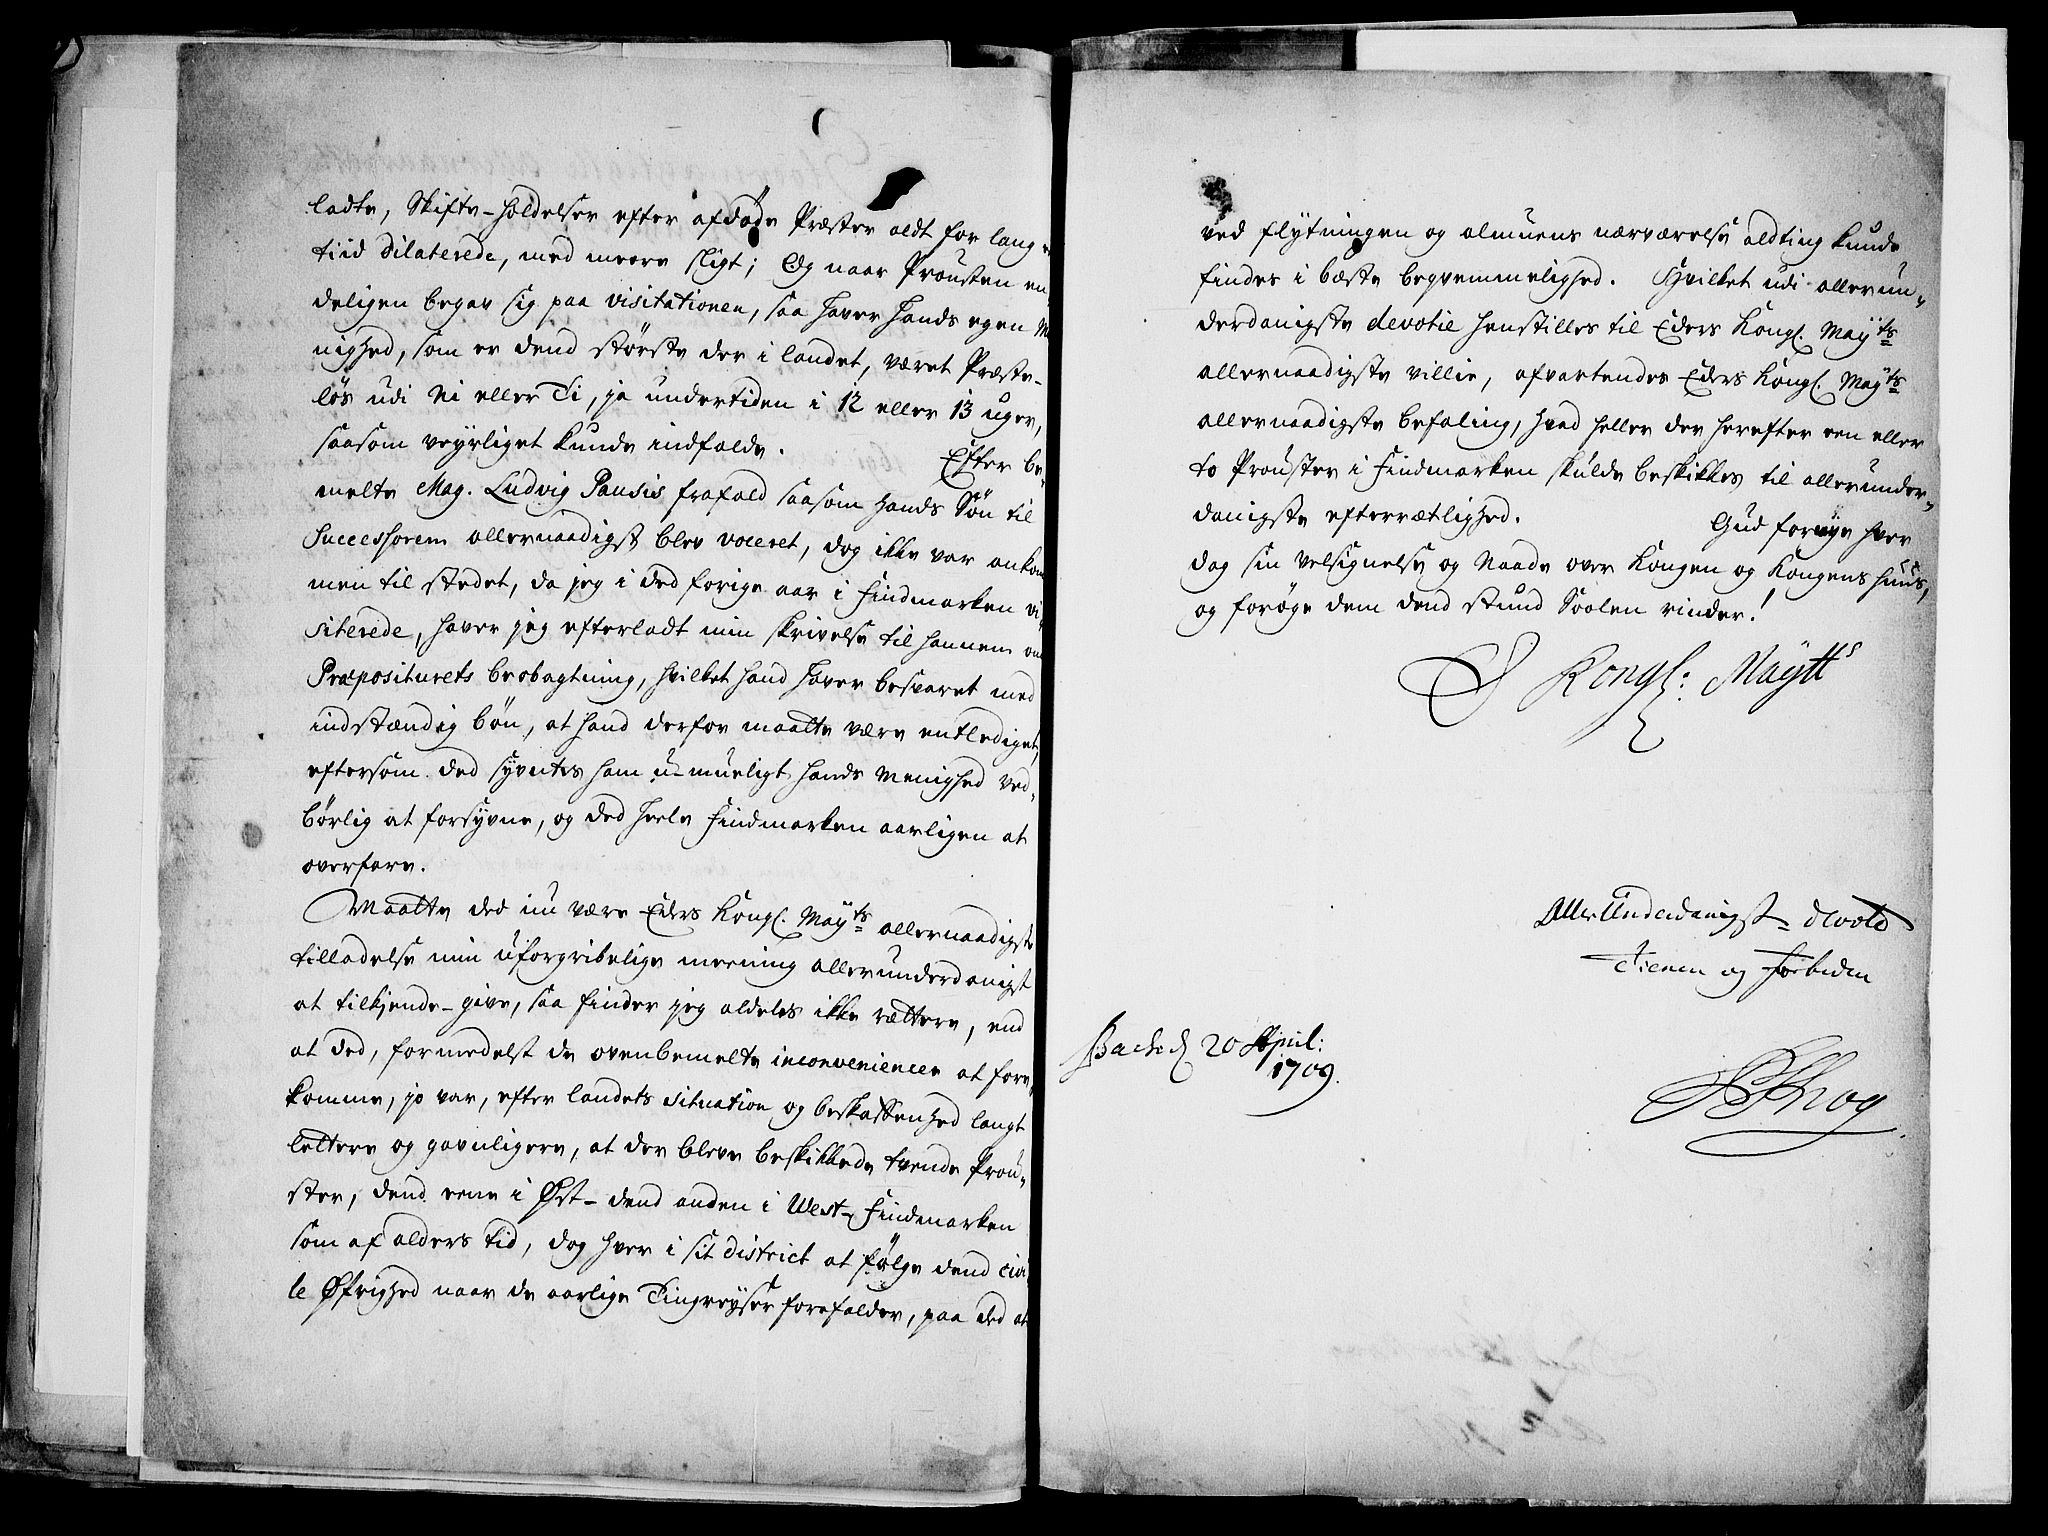 ladte, Skifte-holdelser efter afdöde Præster aldt for lang
tiid dilaterede, med meere sligt; Og naar Prousten en-
deligen begav sig paa visitationen, saa haver hands egen
nighed, som er dend störste der i landet, været Præste-
lös udi Ni eller Ti, ja undertiden i 12 eller 13 uger,
saasom veyrliget kunde indfalde. Efter be-
melte Mag. Ludvig Pausis frafald saasom hands Sön til
Successorem allernaadigst blev voceret, dog ikke var ankom
men til stedet, da jeg i ded forige aar i Findmarken vi-
siterede, haver jeg efterladt min skrivelse til hannem om
Præpositurets beobagtning, hvilket hand haver besvaret med
indstændig bön, at hand derfor maatte være entlediget,
eftersom ded syentes ham u-mueligt hands Menighed ved-
börlig at forsyene, og ded heele Findmarken aarligen at
overfare.
Maatte ded nu være Eders Kongl. Mayts allernaadigste
tilladelse min uforgribelige meening allerunderdanigst
at tilkjende-give, saa finder jeg aldeles ikke rættere, end
at ded, formedelst de ovenbemelte inconveniencer at fore
komme, jo var, efter landets situation og beskaffenhed langt
lettere og gavnligere, at der bleve beskikkede tvende Prou-
ster, dend eene i Øst- dend anden i West-Findmarken
som af alders tid, dog hver i sit district at følge dend civi
le Øfrighed naar de aarlige Tingreyser forefalder, paa ded at
ved flytningen og almuens nærværelse aldting kunde
findes i bæste beqvemmelighed. Hvilket udi allerun-
derdanigste devotie henstilles til Eders Kongl. Mayts
allernaadigste villie, afvartendes Eders Kongl. Mayts
allernaadigste befaling, hvad heller der herefter een eller
to Prouster i Findmarken skulde beskikkes til allerunder-
danigste efterrætlighed. Gud fornye hver
dag sin velsignelse og Naade over Kongen og Kongens huus,
og foröge dem dend stund Soolen rinder!
E Kongl: Maytts
Aller Underdanigst devote
Tiener og forbeder
Bache d 20 April:
1709.
P Krog